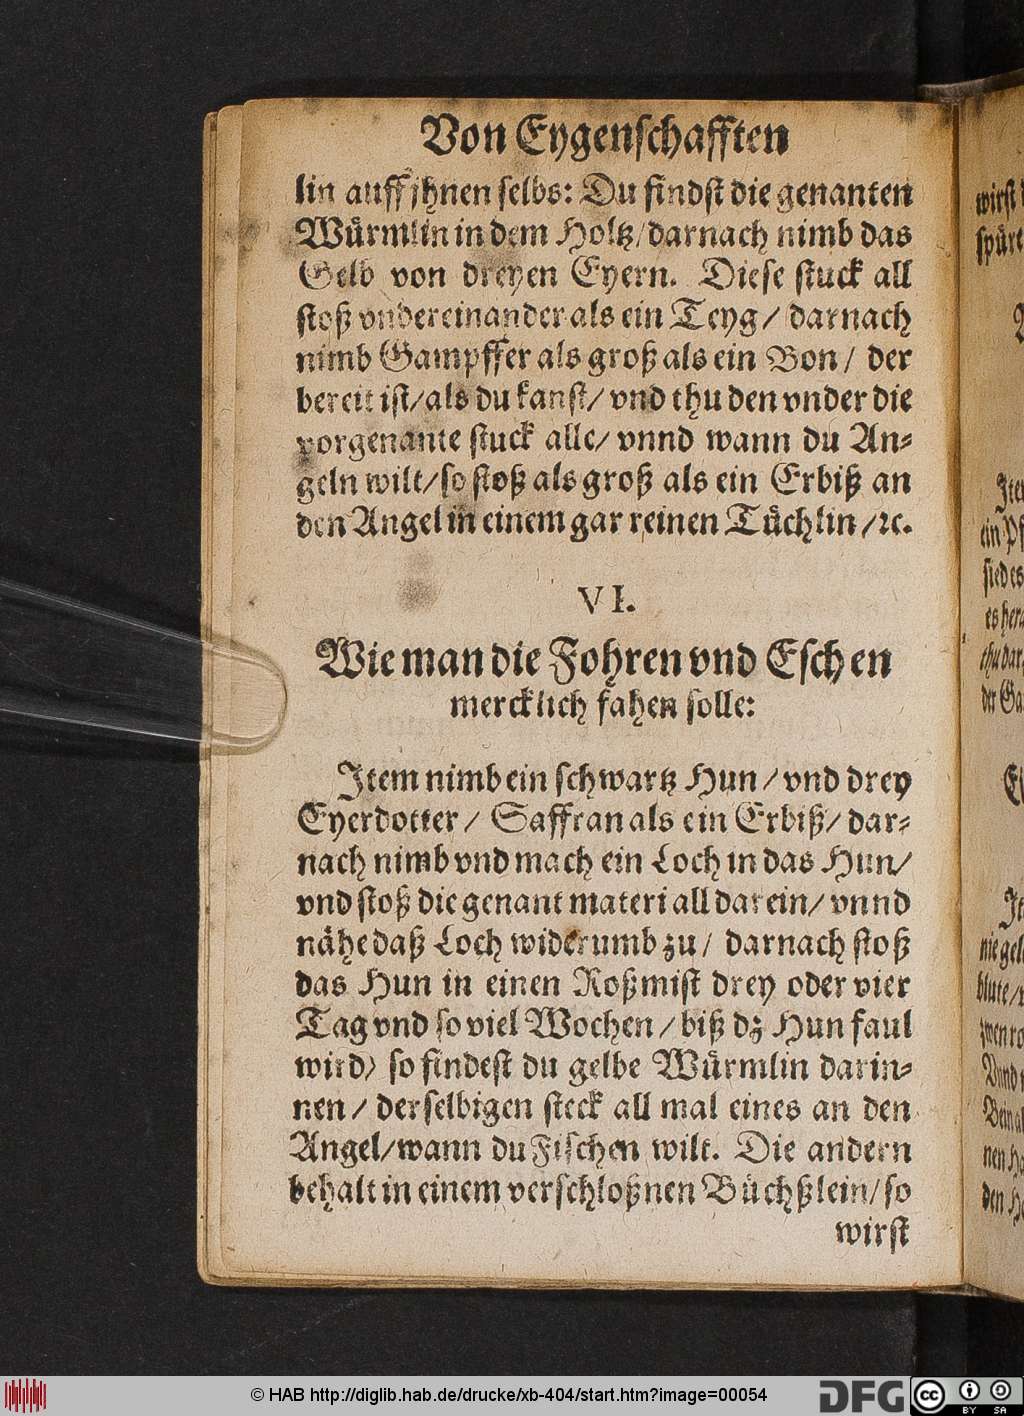 Von Eygenschafften
lin auff jhnen selbs: Du findst die genanten
Würmlin in dem Holtz/ darnach nimb das
Gelb von dreyen Eyern. Diese stuck all
stoß vndereinander als ein Teyg/ darnach
nimb Gampffer als groß als ein Bon/ der
bereit ist/ als du kanst/ vnd thu den vnder die
vorgenante stuck alle/ vnnd wann du An-
geln wilt/ so stoß als groß als ein Erbiß an
den Angel in einem gar reinen Tüchlin/ ꝛc.
VI.
Wie man die Fohren vnd Eschen
mercklich fahen solle:
Item nimb ein schwartz Hun/ vnd drey
Eyerdotter/ Saffran als ein Erbiß/ dar-
nach nimb vnd mach ein Loch in das Hun/
vnd stoß die genant materi all darein/ vnnd
nähe daß Loch widerumb zu/ darnach stoß
das Hun in einen Roßmist drey oder vier
Tag vnd so viel Wochen/ biß dz Hun faul
wird) so findest du gelbe Würmlin darin-
nen/ derselbigen steck all mal eines an den
Angel/ wann du Fischen wilt. Die andern
behalt in einem verschloßnen Büchßlein/ so
wirst
wirst
spüre
Item
ein Pf
sied es
es hera
thu dar
der Ga
It
nie gel
blute/
zwen ro
Vnnd
Bein al
nen He
den He
© HAB http://diglib.hab.de/drucke/xb-404/start.htm?image=00054
DFG
cc
BY SA